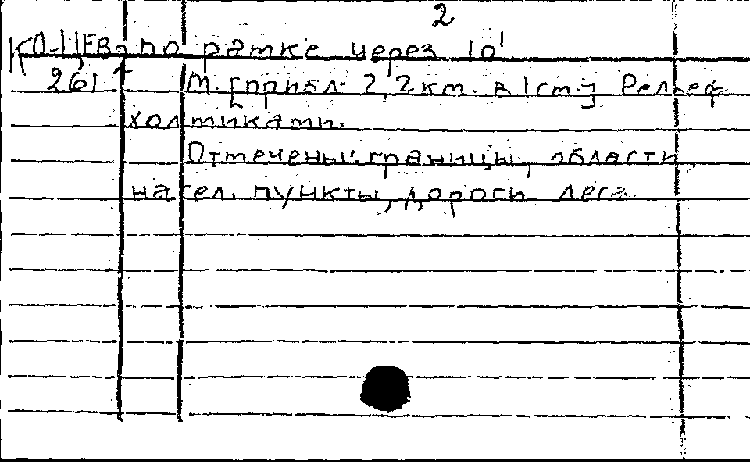 2
по рамке через 10'
261 М. [прибл. 2,2 км. в 1 см.] Рельеф
холмиками.
Отмечены: границы, области,
насел. пункты, дороги леса